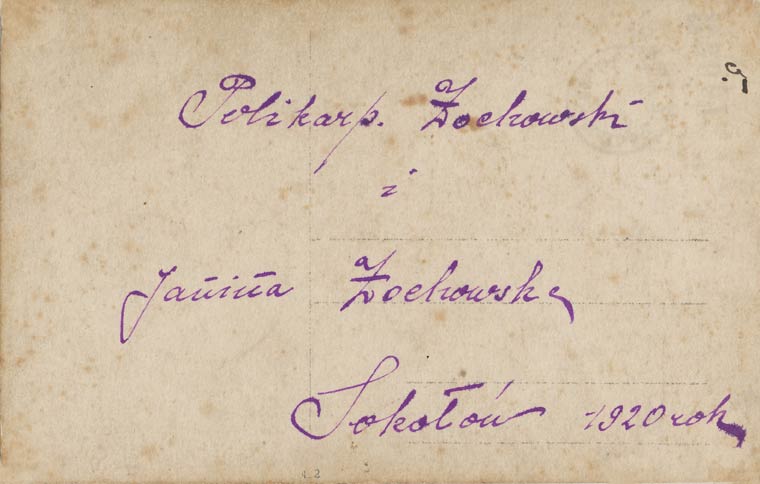 Polikarp. Żochowski
i
Janina Żochowska
Sokołów 1920 rok